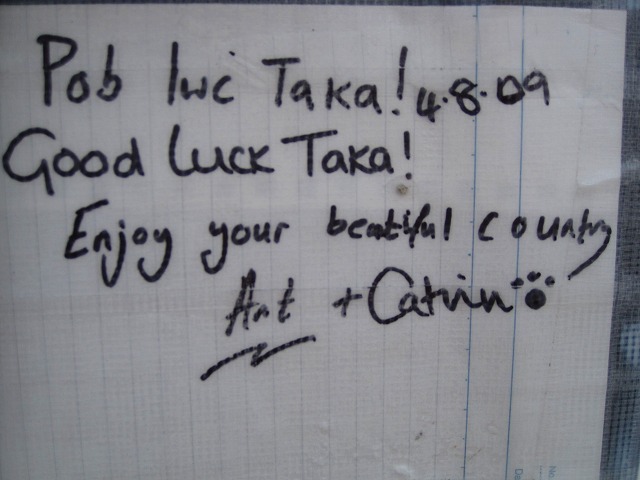 Pob lwc Taka! 4.8.09
Good Luck Taka!
Enjoy your beautiful country
Ant + Catrin